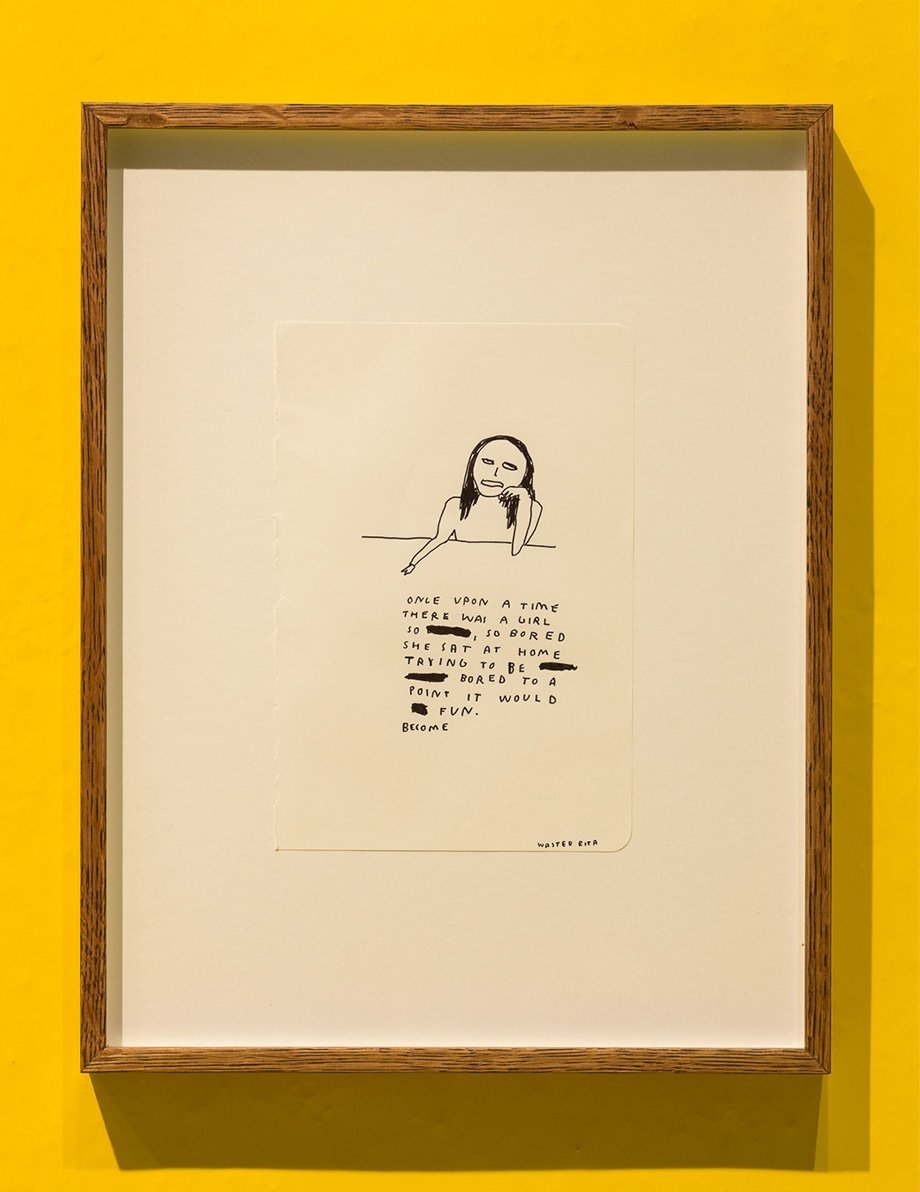 ONCE UPON A TIME
THERE WAS A GIRL
SO , SO BORED
SHE SAT AT HOME
TRYING TO BE
BORED TO A
POINT IT WOULD
FUN.
BECOME
WASTED RITA